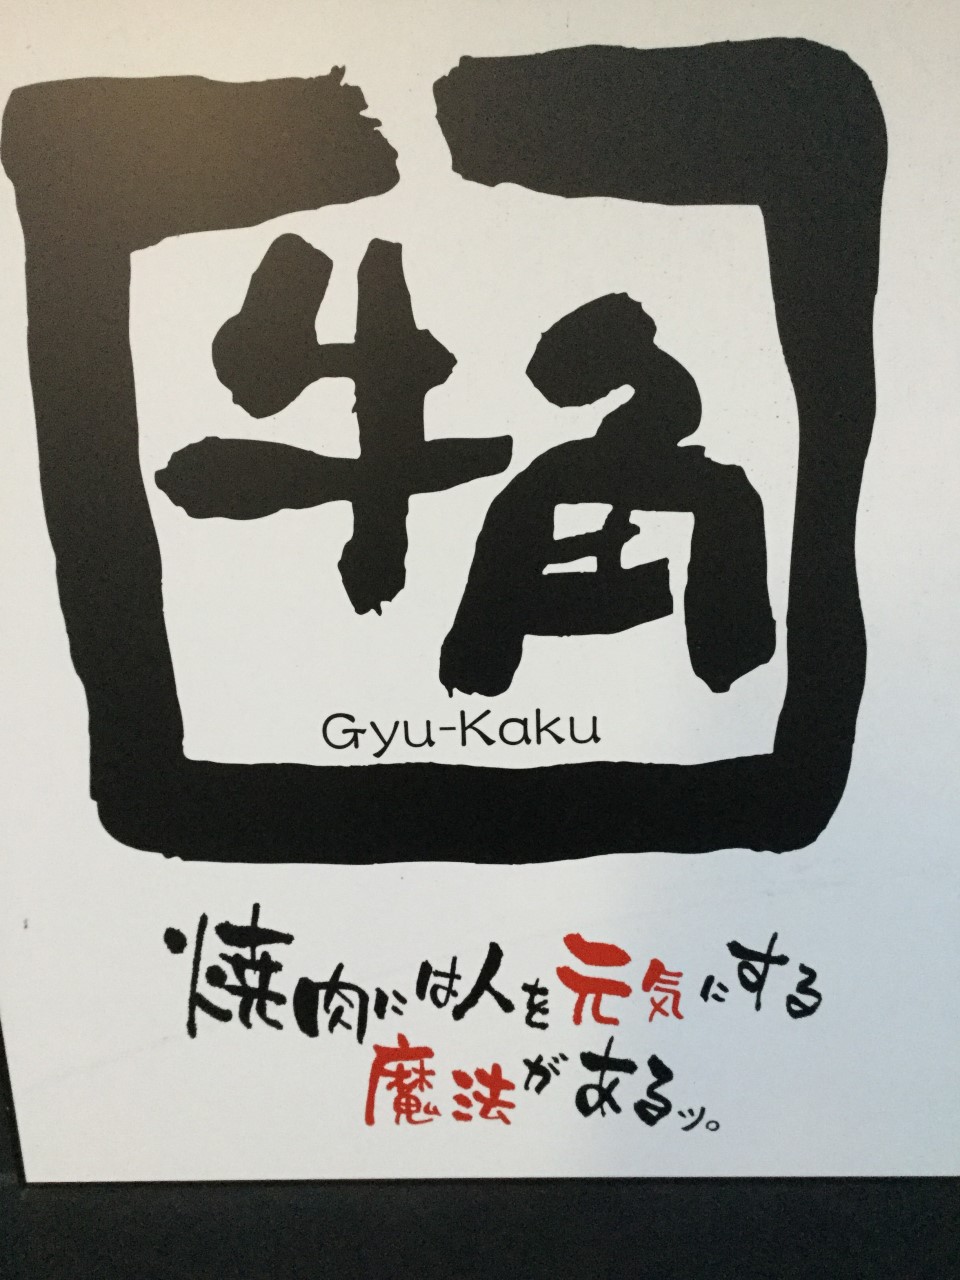 牛角
Gyu-Kaku
焼肉には人を元気にする
魔法があるッ。